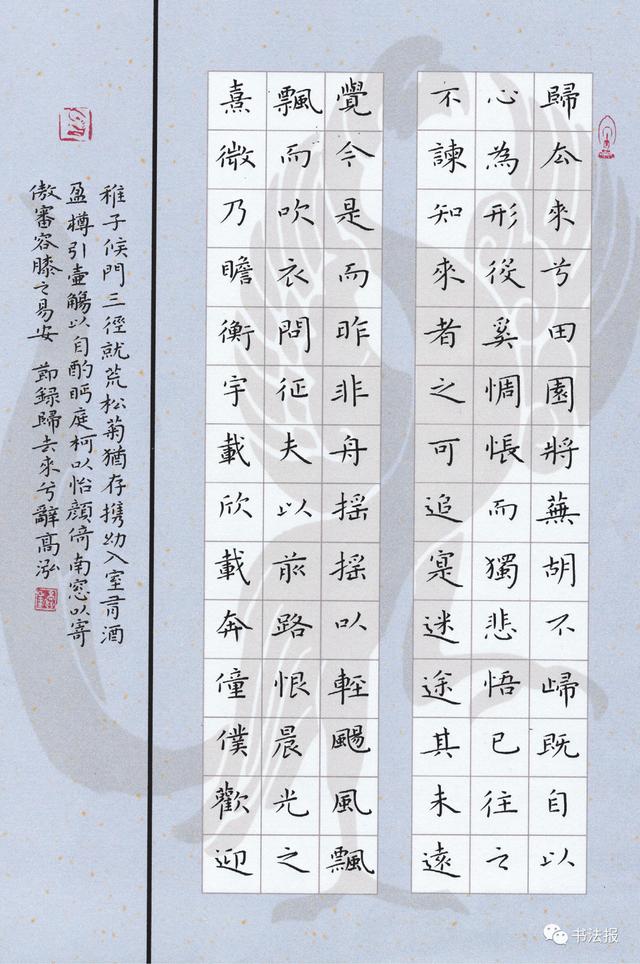 歸厺來兮田園將蕪胡不歸既自以
心為形役奚惆悵而獨悲悟已往之
不諫知來者之可追寔迷途其未遠
覺今是而昨非舟摇摇以輕颺風飄
飄而吹衣問征夫以前路恨晨光之
熹微乃瞻衡宇載欣載奔僮僕歡迎
稚子候門三徑就荒松菊猶存携幼入室有酒
盈樽引壺觴以自酌眄庭柯以怡顏倚南窓以寄
傲審容膝之易安 節録歸去來兮辭高泓
书法报